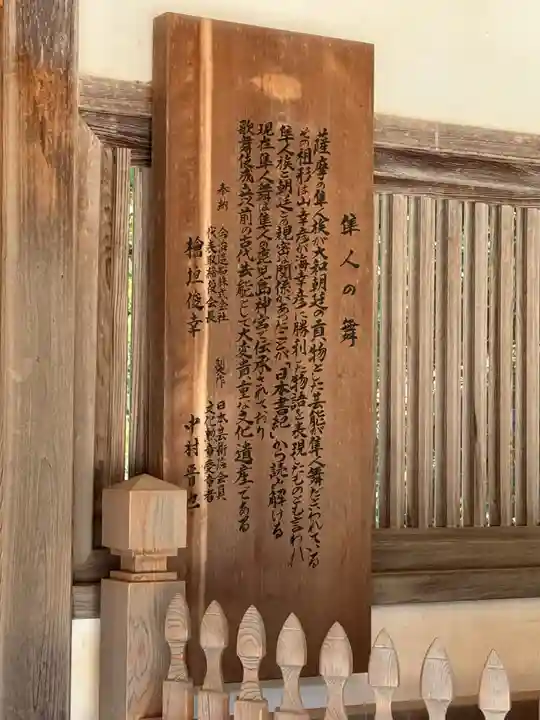 隼人の舞
薩摩の隼人族が大和朝廷の貢物とした芸能が隼人舞だといわれている
その祖形は山幸彦が海幸彦に勝利した物語を表現したものとも言われ
隼人族と朝廷との親密な関係があったことが「日本書紀」から読み解ける
現在隼人舞は隼人の鹿児島神宮で伝承されており
歌舞伎成立以前の古代芸能として大変貴重な文化遺産である
奉納 今治造船株式会社
代表取締役会長
檜垣俊幸
製作 日本芸術院会員
文化勲章受章者
中村晋也